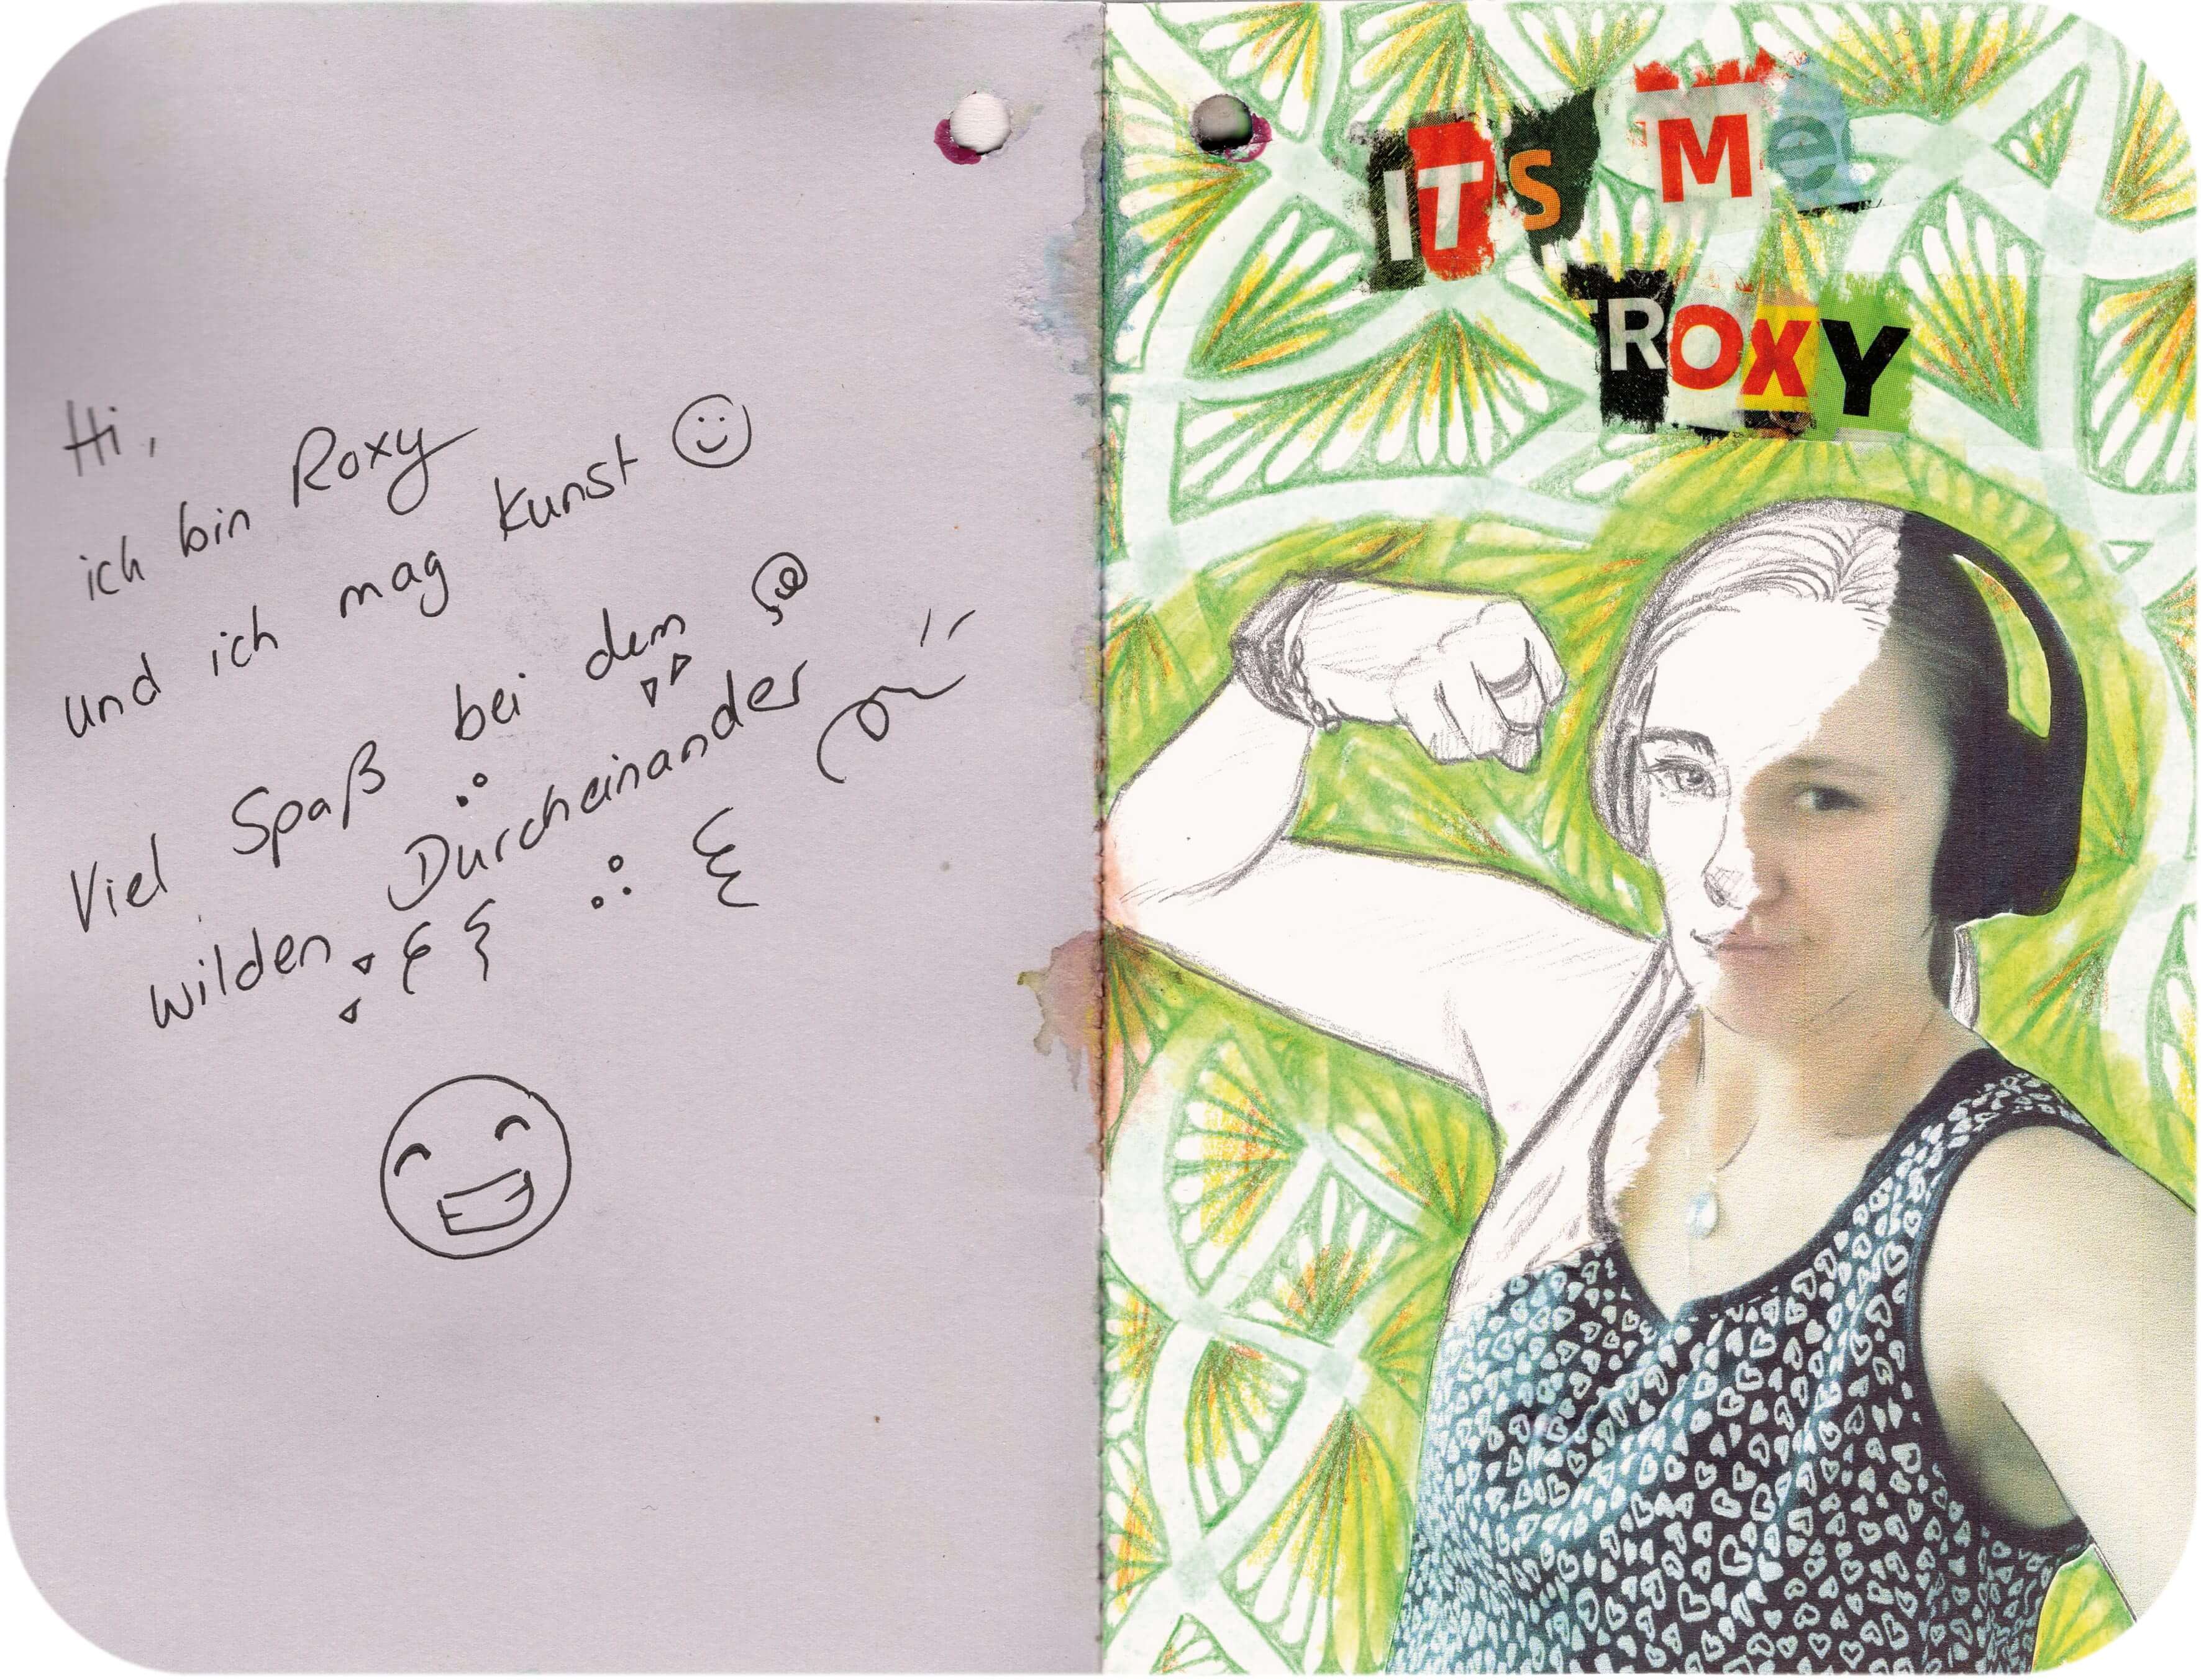 Hi,
ich bin Roxy
und ich mag Kunst
Viel Spaß bei dem
wilden Durcheinander
ITS Me
ROXY